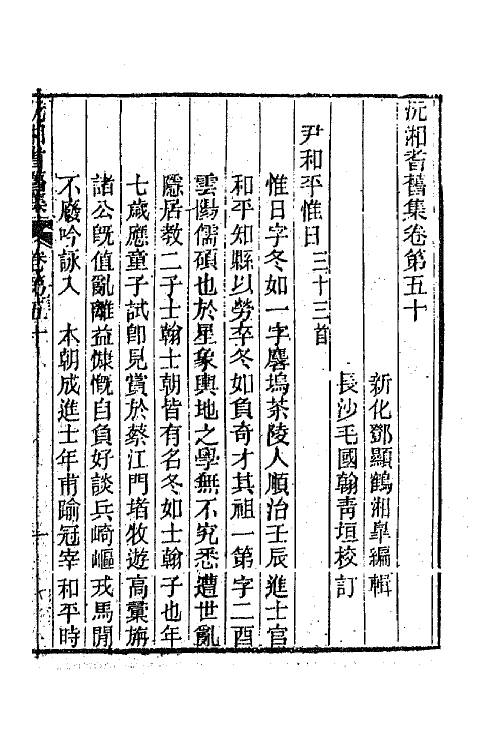 沅湘耆舊集卷第五十
新化鄧顯鶴湘臯編輯
長沙毛國翰青垣校訂
尹和平惟日三十三首
惟日字冬如一字麐塢茶陵人順治壬辰進士官
和平知縣以勞卒冬如負奇才其祖一第字二酉
雲陽儒碩也於星象輿地之學無不究悉遭世亂
隱居教二子士翰士朝皆有名冬如士翰子也年
七歲應童子試卽見賞於蔡江門堵牧遊高彙旃
諸公旣值亂離益慷慨自負好談兵崎嶇戎馬間
不廢吟詠入 本朝成進士年甫踰冠宰和平時
沅湘耆舊集 卷第五十